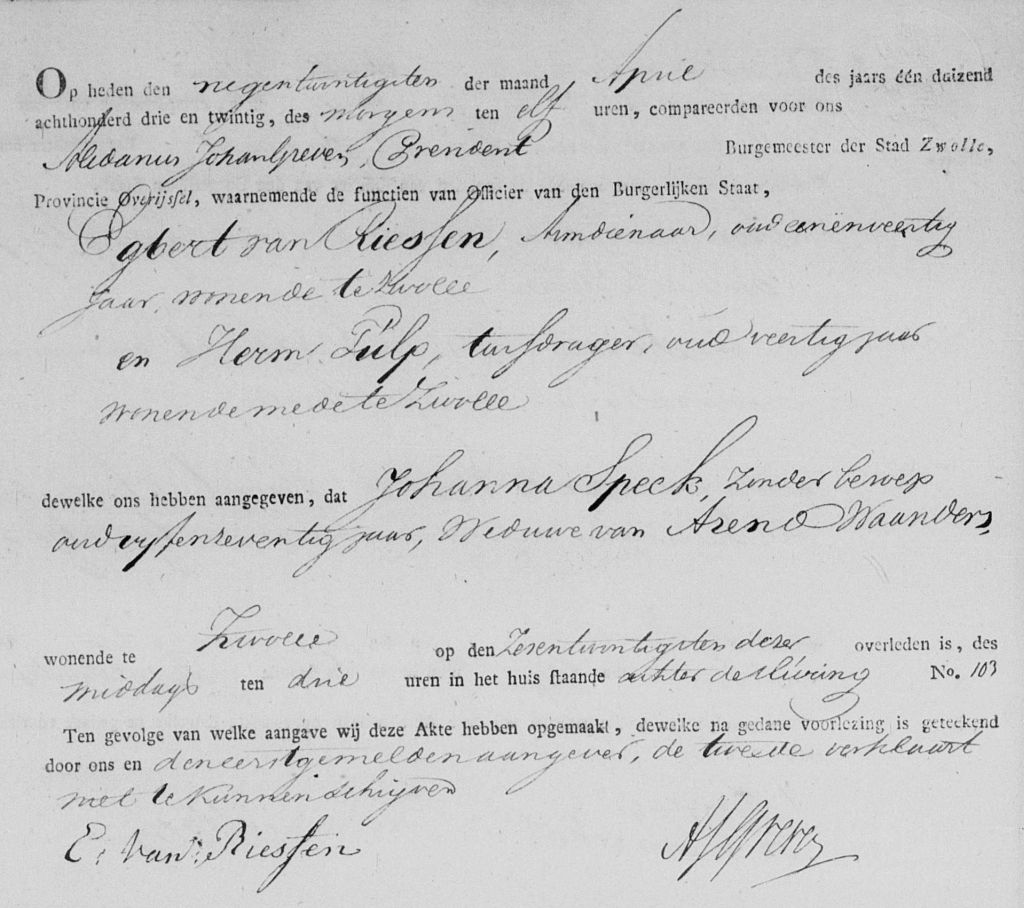 Op heden den negentwintigsten der maand April des jaars één duizend
achthonderd drie en twintig, des morgens ten elf uren, compareerden voor ons
Aledanus Johan Greven, President Burgemeester der Stad Zwolle,
Provincie Overijssel, waarnemende de functien van Officier van den Burgerlijken Staat,
Egbert van Riessen, Armdienaar, oud eenënveertig
jaar, wonende te Zwolle
en Herm Pülp, turfdrager, oud veertig jaar
wonende mede te Zwolle
dewelke ons hebben aangegeven, dat Johanna Speck, zonder beroep
oud vyfenzeventig jaar, Weduwe van Arend Waanders,
wonende te Zwolle op den Zesentwintigsten dezer overleden is, des
middags ten drie uren in het huis staande achter de No. 103
Ten gevolge van welke aangave wij deze Akte hebben opgemaakt, dewelke na gedane voorlezing is geteekend
door ons en den eerstgemelden aangever, de tweede verklaart
niet te kunnen schijven
E. van Riessen AJGreven